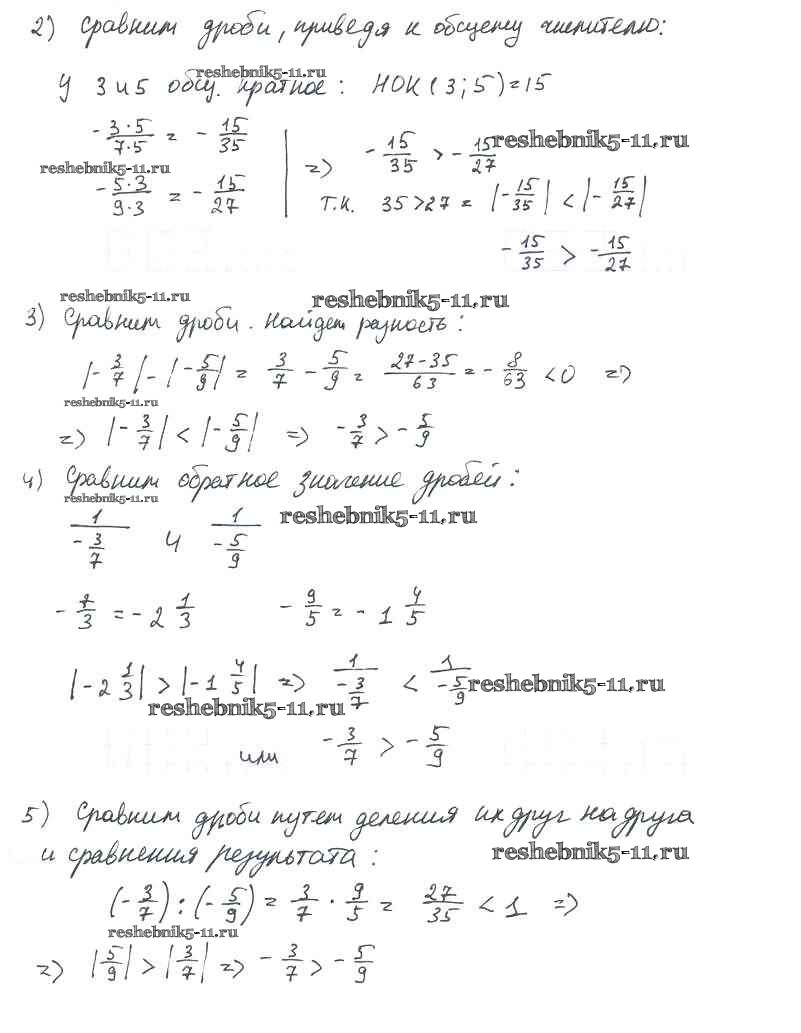 2) Сравним дроби, приведя к общему числителю:
reshebnik5-11.ru
У 3 и 5 общ. кратное: НОК (3; 5) = 15
- 3·5/7·5 = - 15/35
reshebnik5-11.ru
- 5·3/9·3 = - 15/27
=> - 15/35 > - 15/27
reshebnik5-11.ru
т.к. 35 > 27 = |- 15/35| < |- 15/27|
- 15/35 > - 15/27
reshebnik5-11.ru
reshebnik5-11.ru
3) Сравним дроби. Найдем разность:
|- 3/7| - |- 5/9| = 3/7 - 5/9 = 27-35/63 = - 8/63 < 0 =>
reshebnik5-11.ru
=> |- 3/7| < |- 5/9| => - 3/7 > - 5/9
4) Сравним обратное значение дробей:
reshebnik5-11.ru
reshebnik5-11.ru
1/(- 3/7) и 1/(- 5/9)
- 7/3 = - 2 1/3 - 9/5 = - 1 4/5
|- 2 1/3| > |- 1 4/5| => 1/(- 3/7) < 1/(- 5/9)
reshebnik5-11.ru
reshebnik5-11.ru
или - 3/7 > - 5/9
5) Сравним дроби путем деления их друг на друга
и сравнения результата:
reshebnik5-11.ru
(- 3/7) : (- 5/9) = 3/7 · 9/5 = 27/35 < 1 =>
reshebnik5-11.ru
=> |5/9| > |3/7| => - 3/7 > - 5/9